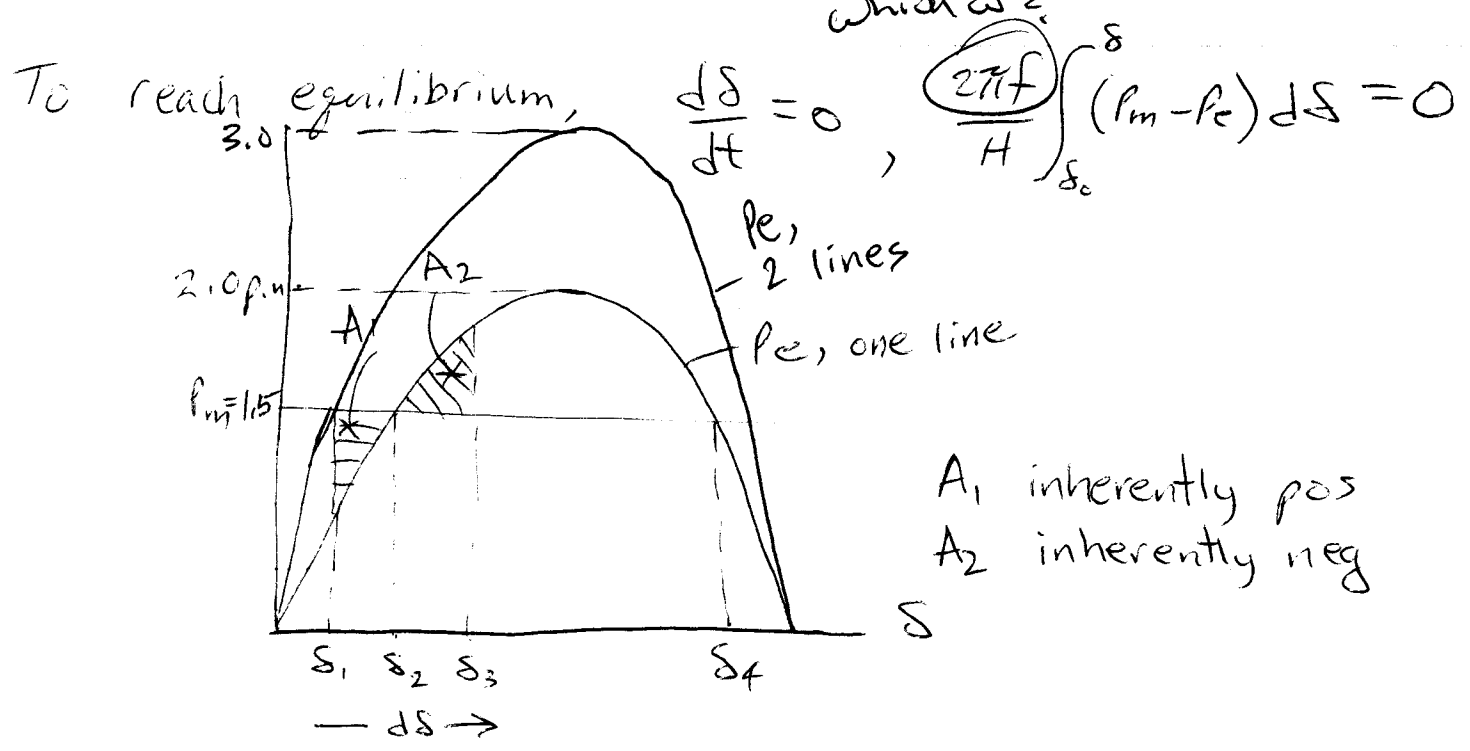 which is?
To reach equilibrium, dδ/dt = 0 , 2πf/H ∫_δ₀^δ (Pm - Pe) dδ = 0
3.0
Pe,
2 lines
A2
2.0 p.u.
A1
Pe, one line
Pm = 1.5
A1 inherently pos
A2 inherently neg
δ
δ1 δ2 δ3 δ4
— dδ →